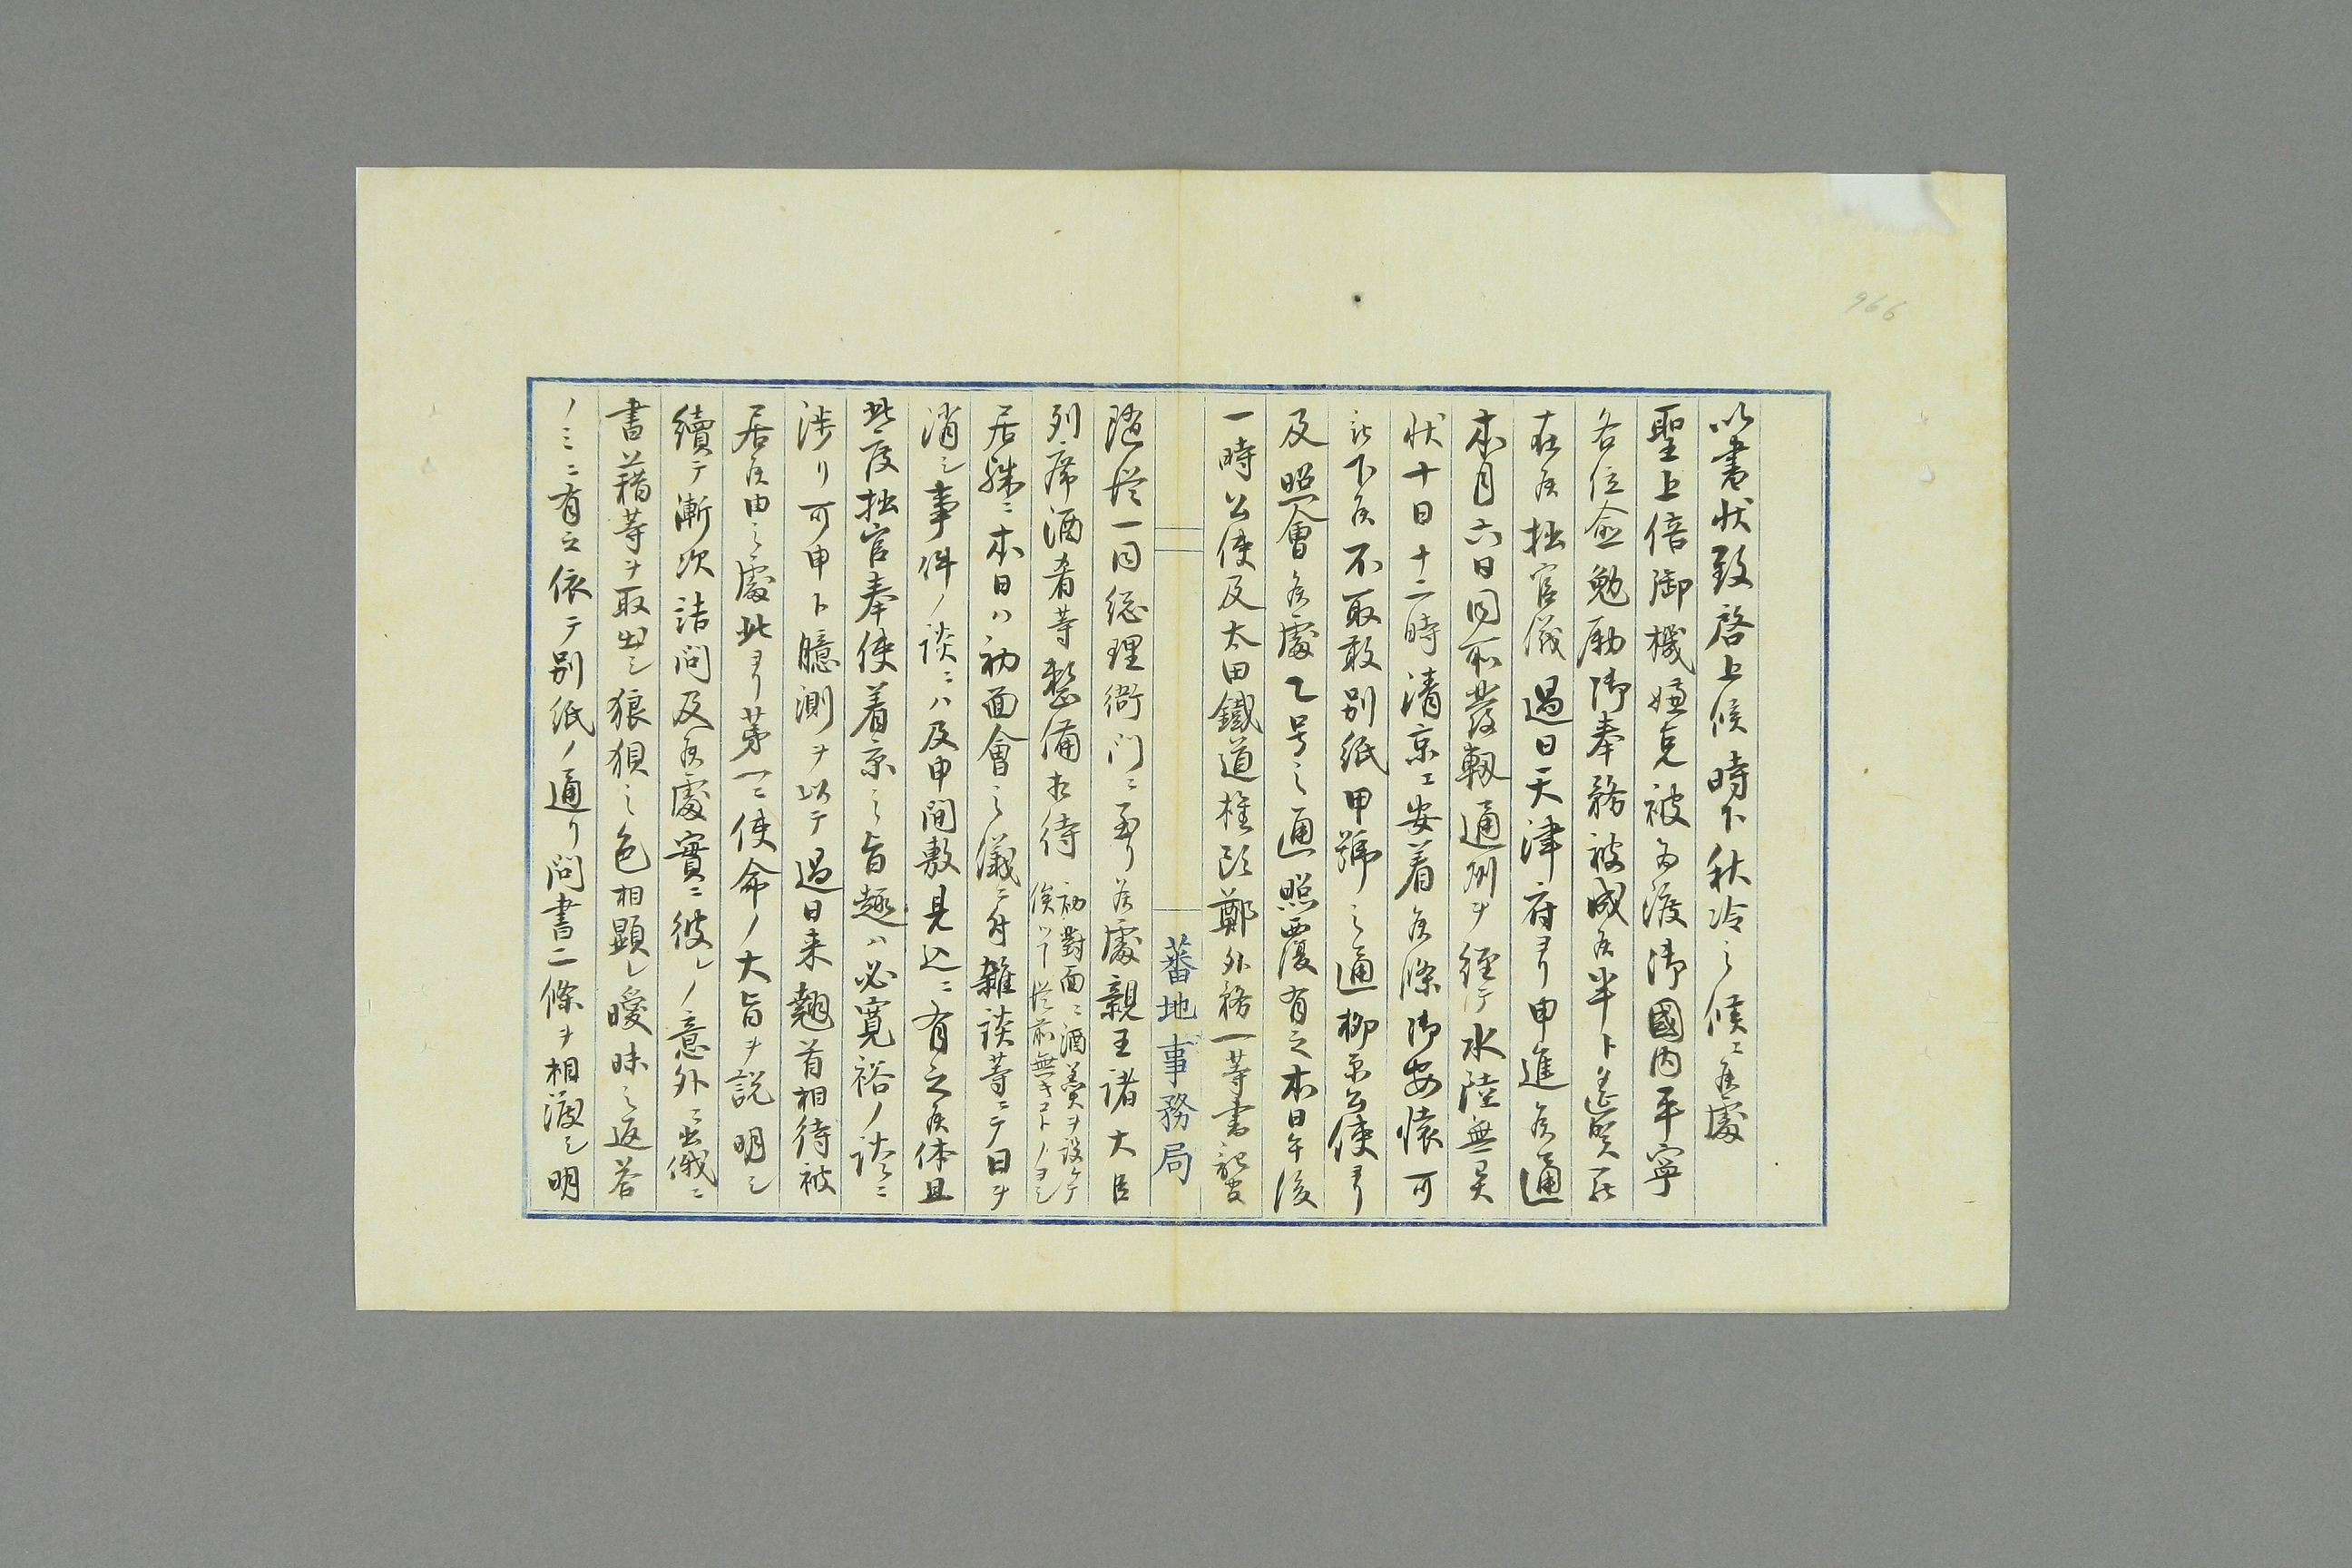 966
以書状致啓上候時下秋冷之候ニ候處
聖上倍御機嫌克被為渡御國内平寧
各位僉勉勵御奉務被成候半ト遙賀
在候拙官儀過日天津府ヨリ申進候通
本月六日同所發軔通州ヲ經テ水陸無异
状十日十二時清京エ安着候條御安懐可
被下候不取敢別紙甲號之通柳原公使ヨリ
及照會候處乙号之通照覆有之本日午後
一時公使及太田鐵道権頭鄭外務一等書記官
蕃地事務局
隨従一同總理衙門ニ至リ候處親王諸大臣
列席酒肴等整備相待
初對面ニ酒羮ヲ設ケテ
俟ツヿ従前無キコトノヨシ
居殊ニ本日ハ初面會之儀ニ付雑談等ニテ日ヲ
消シ事件ノ談ニハ及申間敷見込ニ有之候体且
此度拙官奉使着京之旨趣ハ必寛裕ノ談ニ
渉リ可申ト臆測ヲ以テ過日来翹首相待被
居候由之處此ヨリ第一ニ使命ノ大旨ヲ説明シ
續テ漸次詰問及候處實ニ彼レノ意外ニ出俄ニ
書籍等ヲ取出シ狼狽之色相顕レ曖昧之返答
ノミニ有之依テ別紙ノ通リ問書二條ヲ相渡シ明